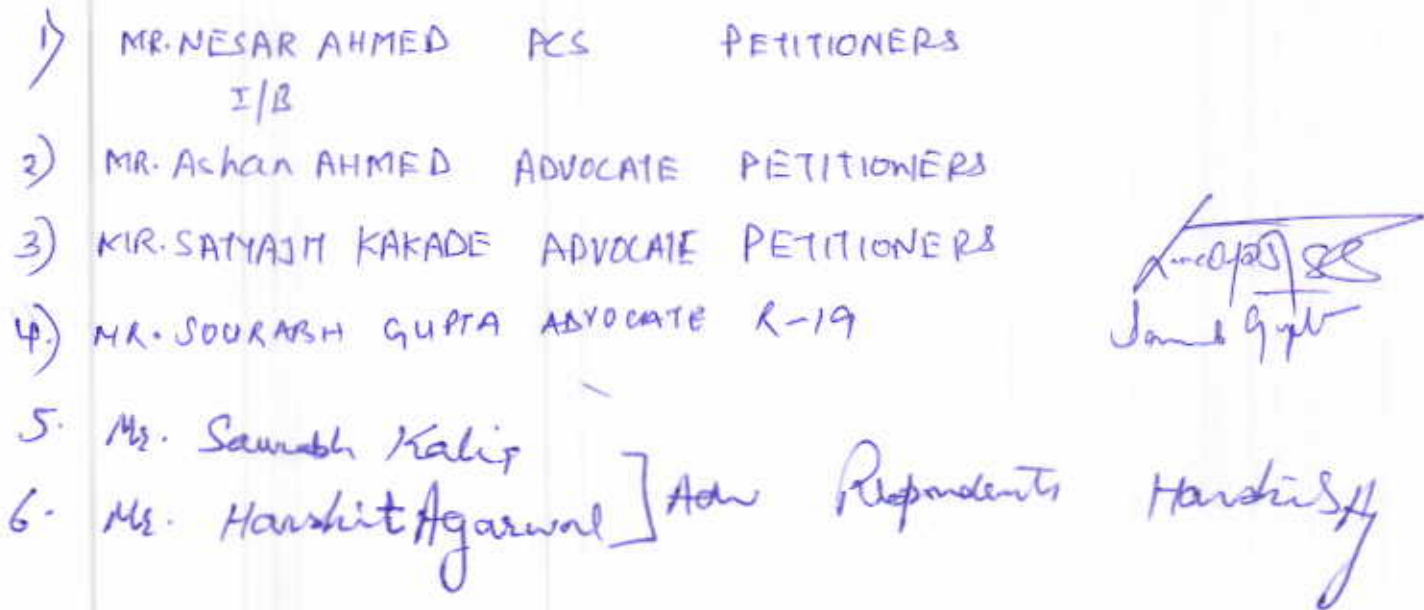 1) MR. NESAR AHMED PCS PETITIONERS
I/B
2) MR. Ashan AHMED ADVOCATE PETITIONERS
3) MR. SATYAJIT KAKADE ADVOCATE PETITIONERS
4) MR. SOURABH GUPTA ADVOCATE R-19
5. Mr. Saurabh Kalia
6. Mr. Harshit Agarwal ] Adv Respondents